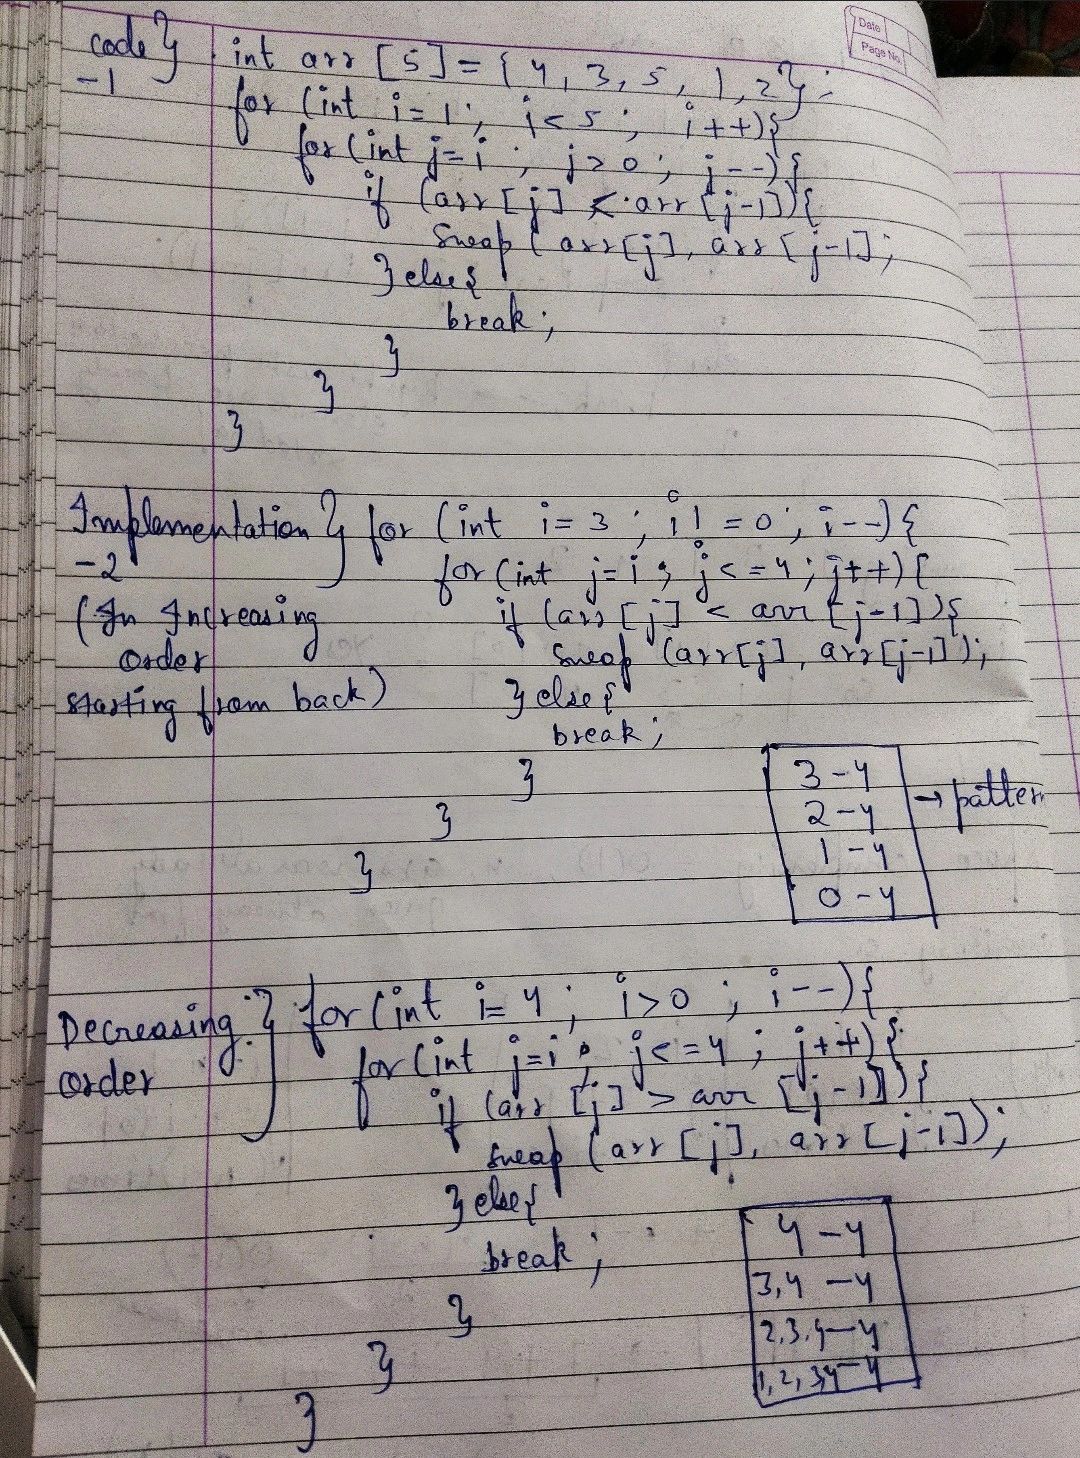 Date
Page No.
code} int arr [5] = { 4, 3, 5, 1, 2};
-1 for (int i=1; i<5; i++){
for (int j=i; j>0; j--){
if (arr[j] < arr[j-1]){
Swap (arr[j], arr[j-1];
} else{
break;
}
}
}
Implementation} for (int i=3; i!=0; i--){
-2 for (int j=i; j<=4; j++){
(In Increasing if (arr[j] < arr[j-1]){
order swap (arr[j], arr[j-1]);
starting from back) } else{
break;
}
}
}
3-4
2-4 → patter
1-4
0-4
Decreasing} for (int i=4; i>0; i--){
order for (int j=i; j<=4; j++){
if (arr[j] > arr[j-1]){
swap (arr[j], arr[j-1]);
} else{
break;
}
}
}
4-4
3,4-4
2,3,4-4
1,2,3,4-4